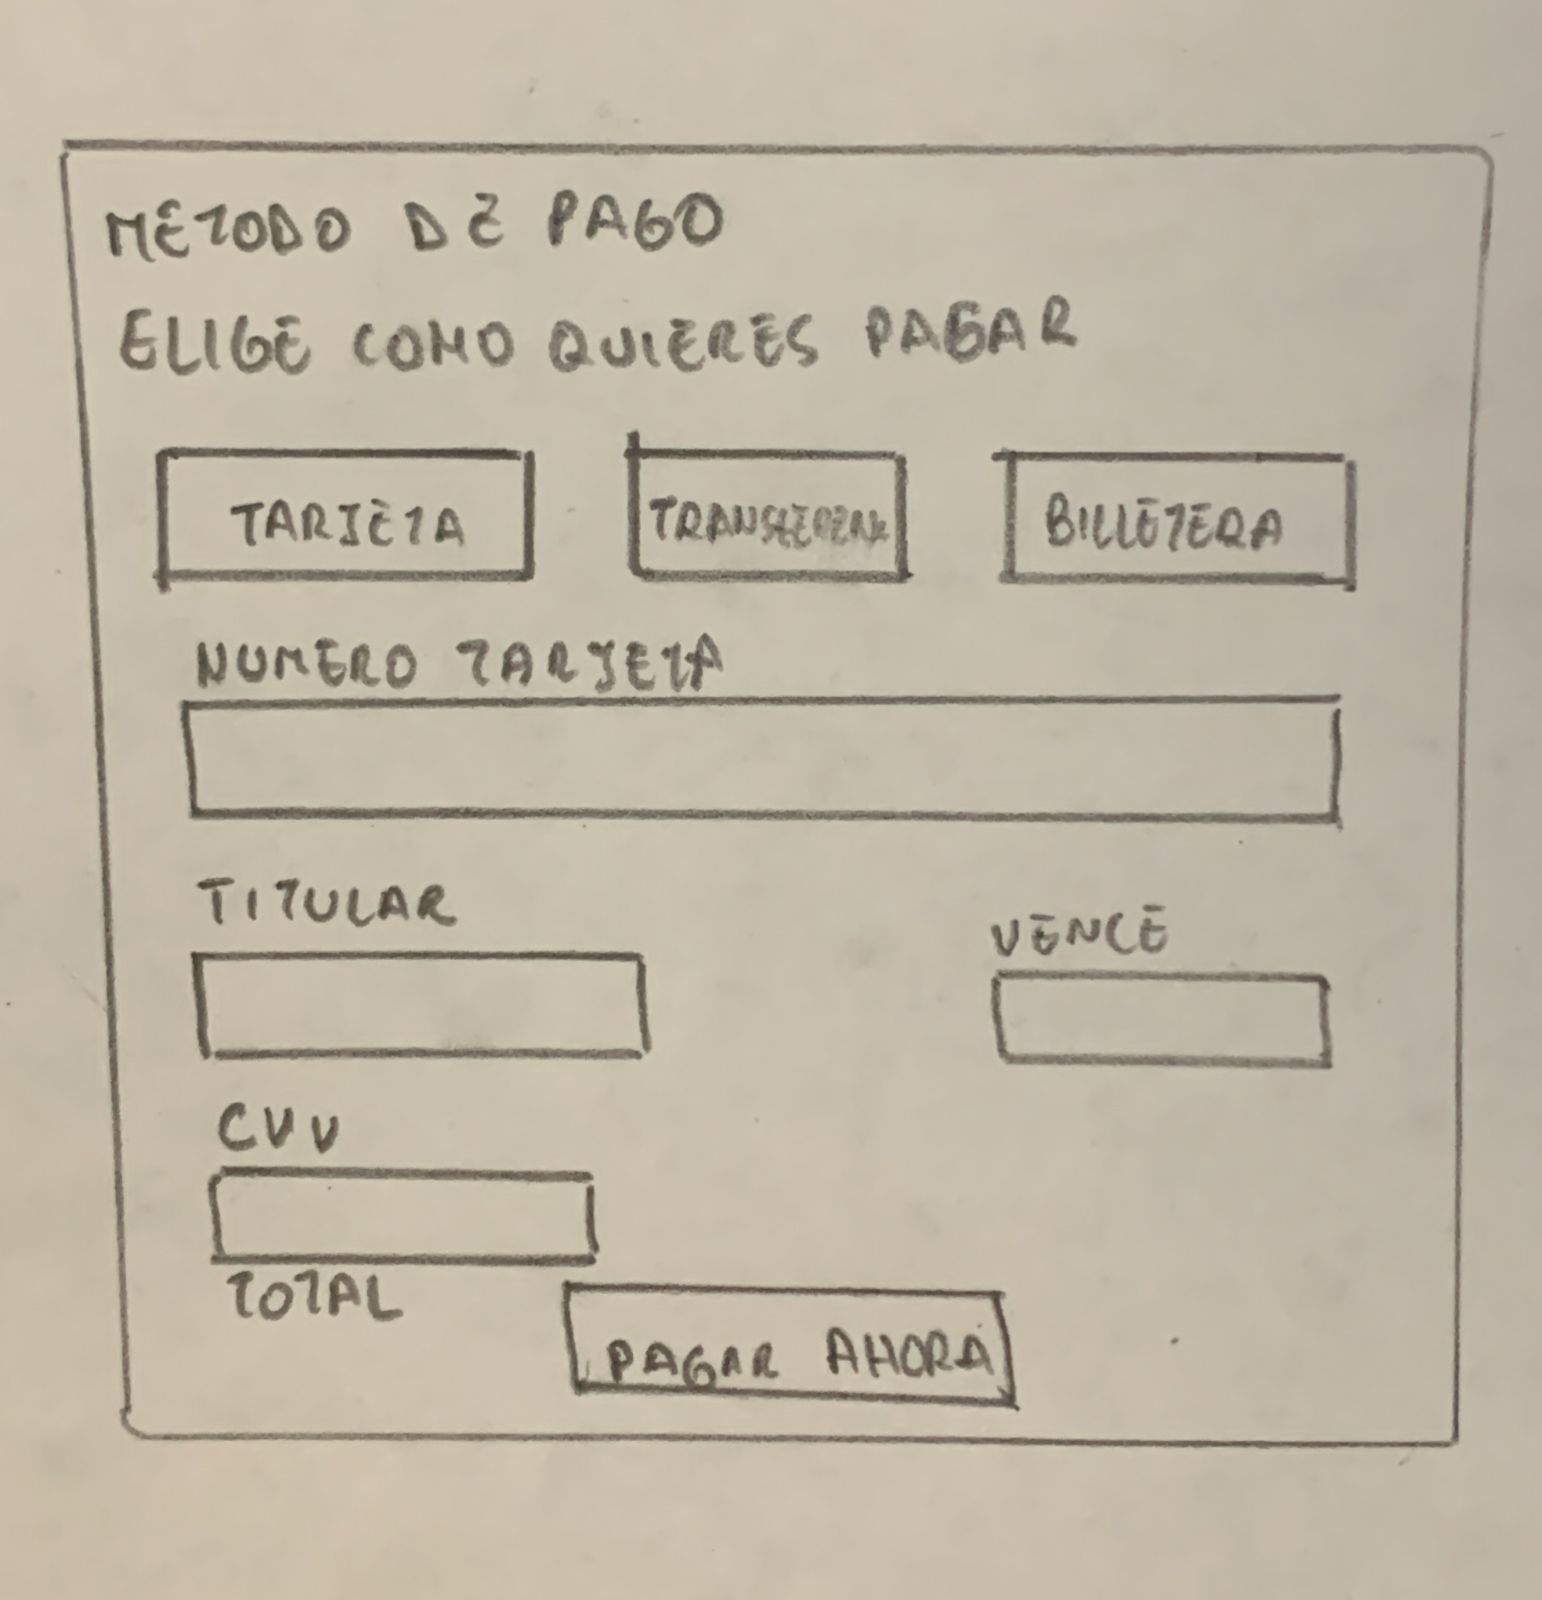 METODO DE PAGO
ELIGE COMO QUIERES PAGAR
TARJETA
BILLETERA
NUMERO TARJETA
TITULAR
VENCE
CVV
TOTAL
PAGAR AHORA